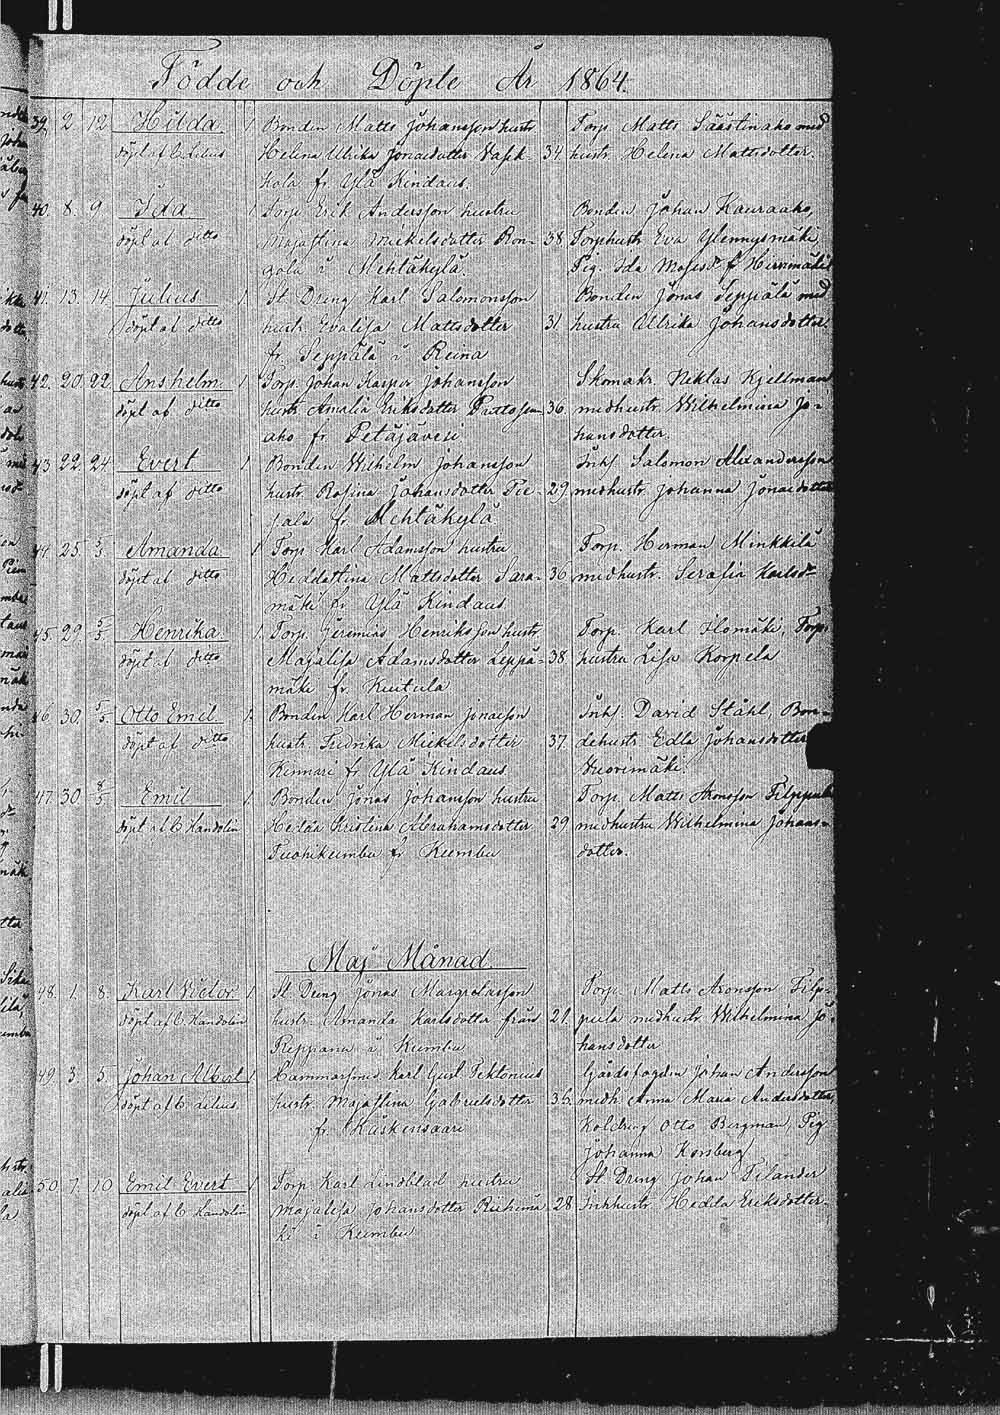 Födde och Döpte År 1864.
39. 2. 12 Hilda 1 Bonden Matts Johansson hustr. Torp. Matts Säästinaho med
döpt af C. Lilius Helena Ulrika Jonaedotter 34. hustr. Helena Mattsdotter.
kola fr. Ylä Kindaus.
40. 8. 9 Ida 1 Torp. Erik Andersson hustru Bonden Johan Kauraaho,
döpt af ditto Majastina Mickelsdotter Ron- 38. Torphustr. Eva Ylennysmäki,
gola i Mehtäkylä. Pig. Ida Mosesdr. f. Hirvimäki
41. 13. 14 Julius 1 St. Dreng Karl Salomonsson Bonden Jonas Seppälä med
döpt af ditto hustr. Evalisa Mattsdotter 31. hustru Ullrika Johansdotter.
fr. Seppälä i Reina
42. 20. 22. Anshelm 1 Torp. Johan Kasper Johansson Skomakr. Neklas Kjellman
döpt af ditto hustr. Amalia Eriksdotter 36. medhustr. Wilhelmina Jo-
aho fr. Petäjävesi hansdotter.
43. 22. 24. Evert 1 Bonden Wilhelm Johansson Inhs. Salomon Alexandersson
döpt af ditto hustr. Rosina Johansdotter Pie- 29. medhustr. Johanna Jonaedotter
sala fr. Mehtäkylä
44. 25. 5/5 Amanda 1 Torp. Karl Adamsson hustru Torp. Herman Minkkilä
döpt af ditto Heddastina Mattsdotter Sara- 36. medhustr. Serafia Karlsdr.
mäki fr. Ylä Kindaus.
45. 29. 5/5 Henrika 1. Torp. Jeremias Henriksson hustr. Torp. Karl Ilomäki, Torp.
döpt af ditto Majalisa Adamsdotter Leppä- 38. hustru Lisa Korpela
mäki fr. Kuitula
46. 30. 5/5. Otto Emil 1. Bonden Karl Herman Jonaeson Inhs. David Ståhl, Bon-
döpt af ditto hustr. Fredrika Mickelsdotter 37. dehustr. Edla Johansdotter
Kinnari fr. Ylä Kindaus Vuorimäki.
47. 30 8/5 Emil 1. Bonden Jonas Johansson hustru Torp. Matts Aronsson Filppula
döpt af C. Handolin Hedda Kristina Abrahamsdotter 29. medhustru Wilhelmina Johans-
Tuohikumbu fr. Kumbu dotter.
Maj Månad.
48. 1. 8. Karl Victor 1 St. Dreng Jonas Margretasson Torp. Matts Aronsson Filp-
döpt af C. Handolin hustr. Amanda Karlsdotter från 21. pula medhustr. Wilhelmina Jo-
i Kumbu hansdotter
49. 3. 5. Johan Albert 1 Hammarsmed Karl Gust. Tektonius Gårdsfogden Johan Andersson
döpt af C. Lilius hustr. Majastina Gabrielsdotter 35. medh. Anna Maria Andersdotter,
fr. Kaskensaari Koldreng Otto Bergman, Pig.
Johanna Korsberg
50. 7. 10 Emil Evert 1 Torp. Karl Lindblad hustru St. Dreng Johan Filander
döpt af C. Handolin Majalisa Johansdotter Riihimä- 28. Inhhustr. Hedda Eriksdotter.
ki i Kumbu